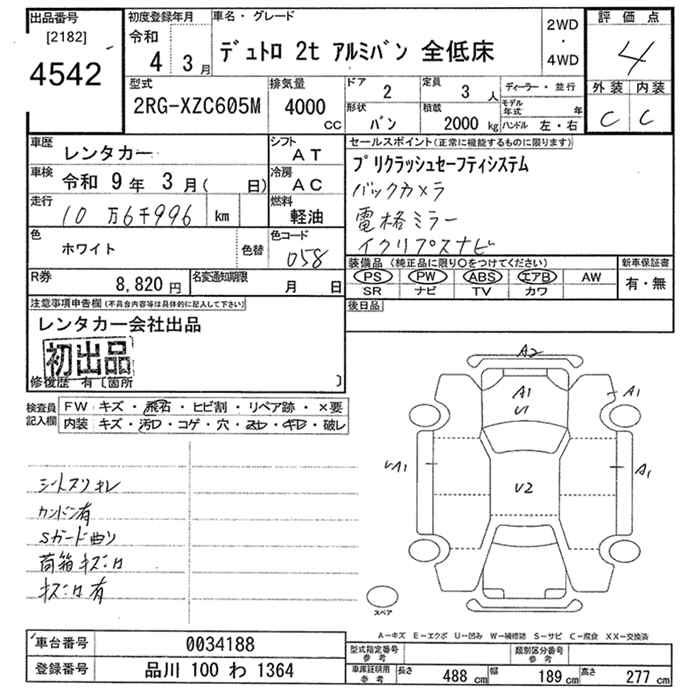 出品番号 [2182] 4542
初度登録年月 令和 4 3月
車名・グレード デュトロ 2t アルミバン 全低床
2WD ・ 4WD
評価点 4
外装 C 内装 C
型式 2RG-XZC605M
排気量 4000 CC
ドア 2 定員 3人
形状 バン 積載 2000 kg
ディーラー・並行
モデル年式 年
ハンドル 左・右
車歴 レンタカー
シフト AT
車検 令和 9年 3月( 日)
冷房 AC
走行 10万6千996 km
燃料 軽油
色 ホワイト 色替
色コード 058
R券 8,820円
名変通知期限 月 日
セールスポイント(正常に機能するものに限ります)
プリクラッシュセーフティシステム
バックカメラ
電格ミラー
イクリプスナビ
装備品(純正品に限り○をつけてください)
PS PW ABS エアB AW
SR ナビ TV カワ
新車保証書 有・無
後日品
注意事項申告欄(不具合内容等は具体的に記入して下さい)
レンタカー会社出品
初出品
修復歴 有〔箇所 〕
検査員記入欄 FW キズ・飛石・ヒビ割・リペア跡・×要
内装 キズ・汚れ・コゲ・穴・スレ・キレ・破レ
シートスリキレ
カンドン有
Sガード曲り
荷箱キズ凹
キズ凹有
A2
A1
U1
A1
UA1
A1
U2
スペア
A-キズ E-エクボ U-凹み W-補修跡 S-サビ C-腐食 XX-交換済
車台番号 0034188
登録番号 品川 100 わ 1364
型式指定番号 参考
類別区分番号 参考
車庫証明用 参考 長さ 488 cm 幅 189 cm 高さ 277 cm